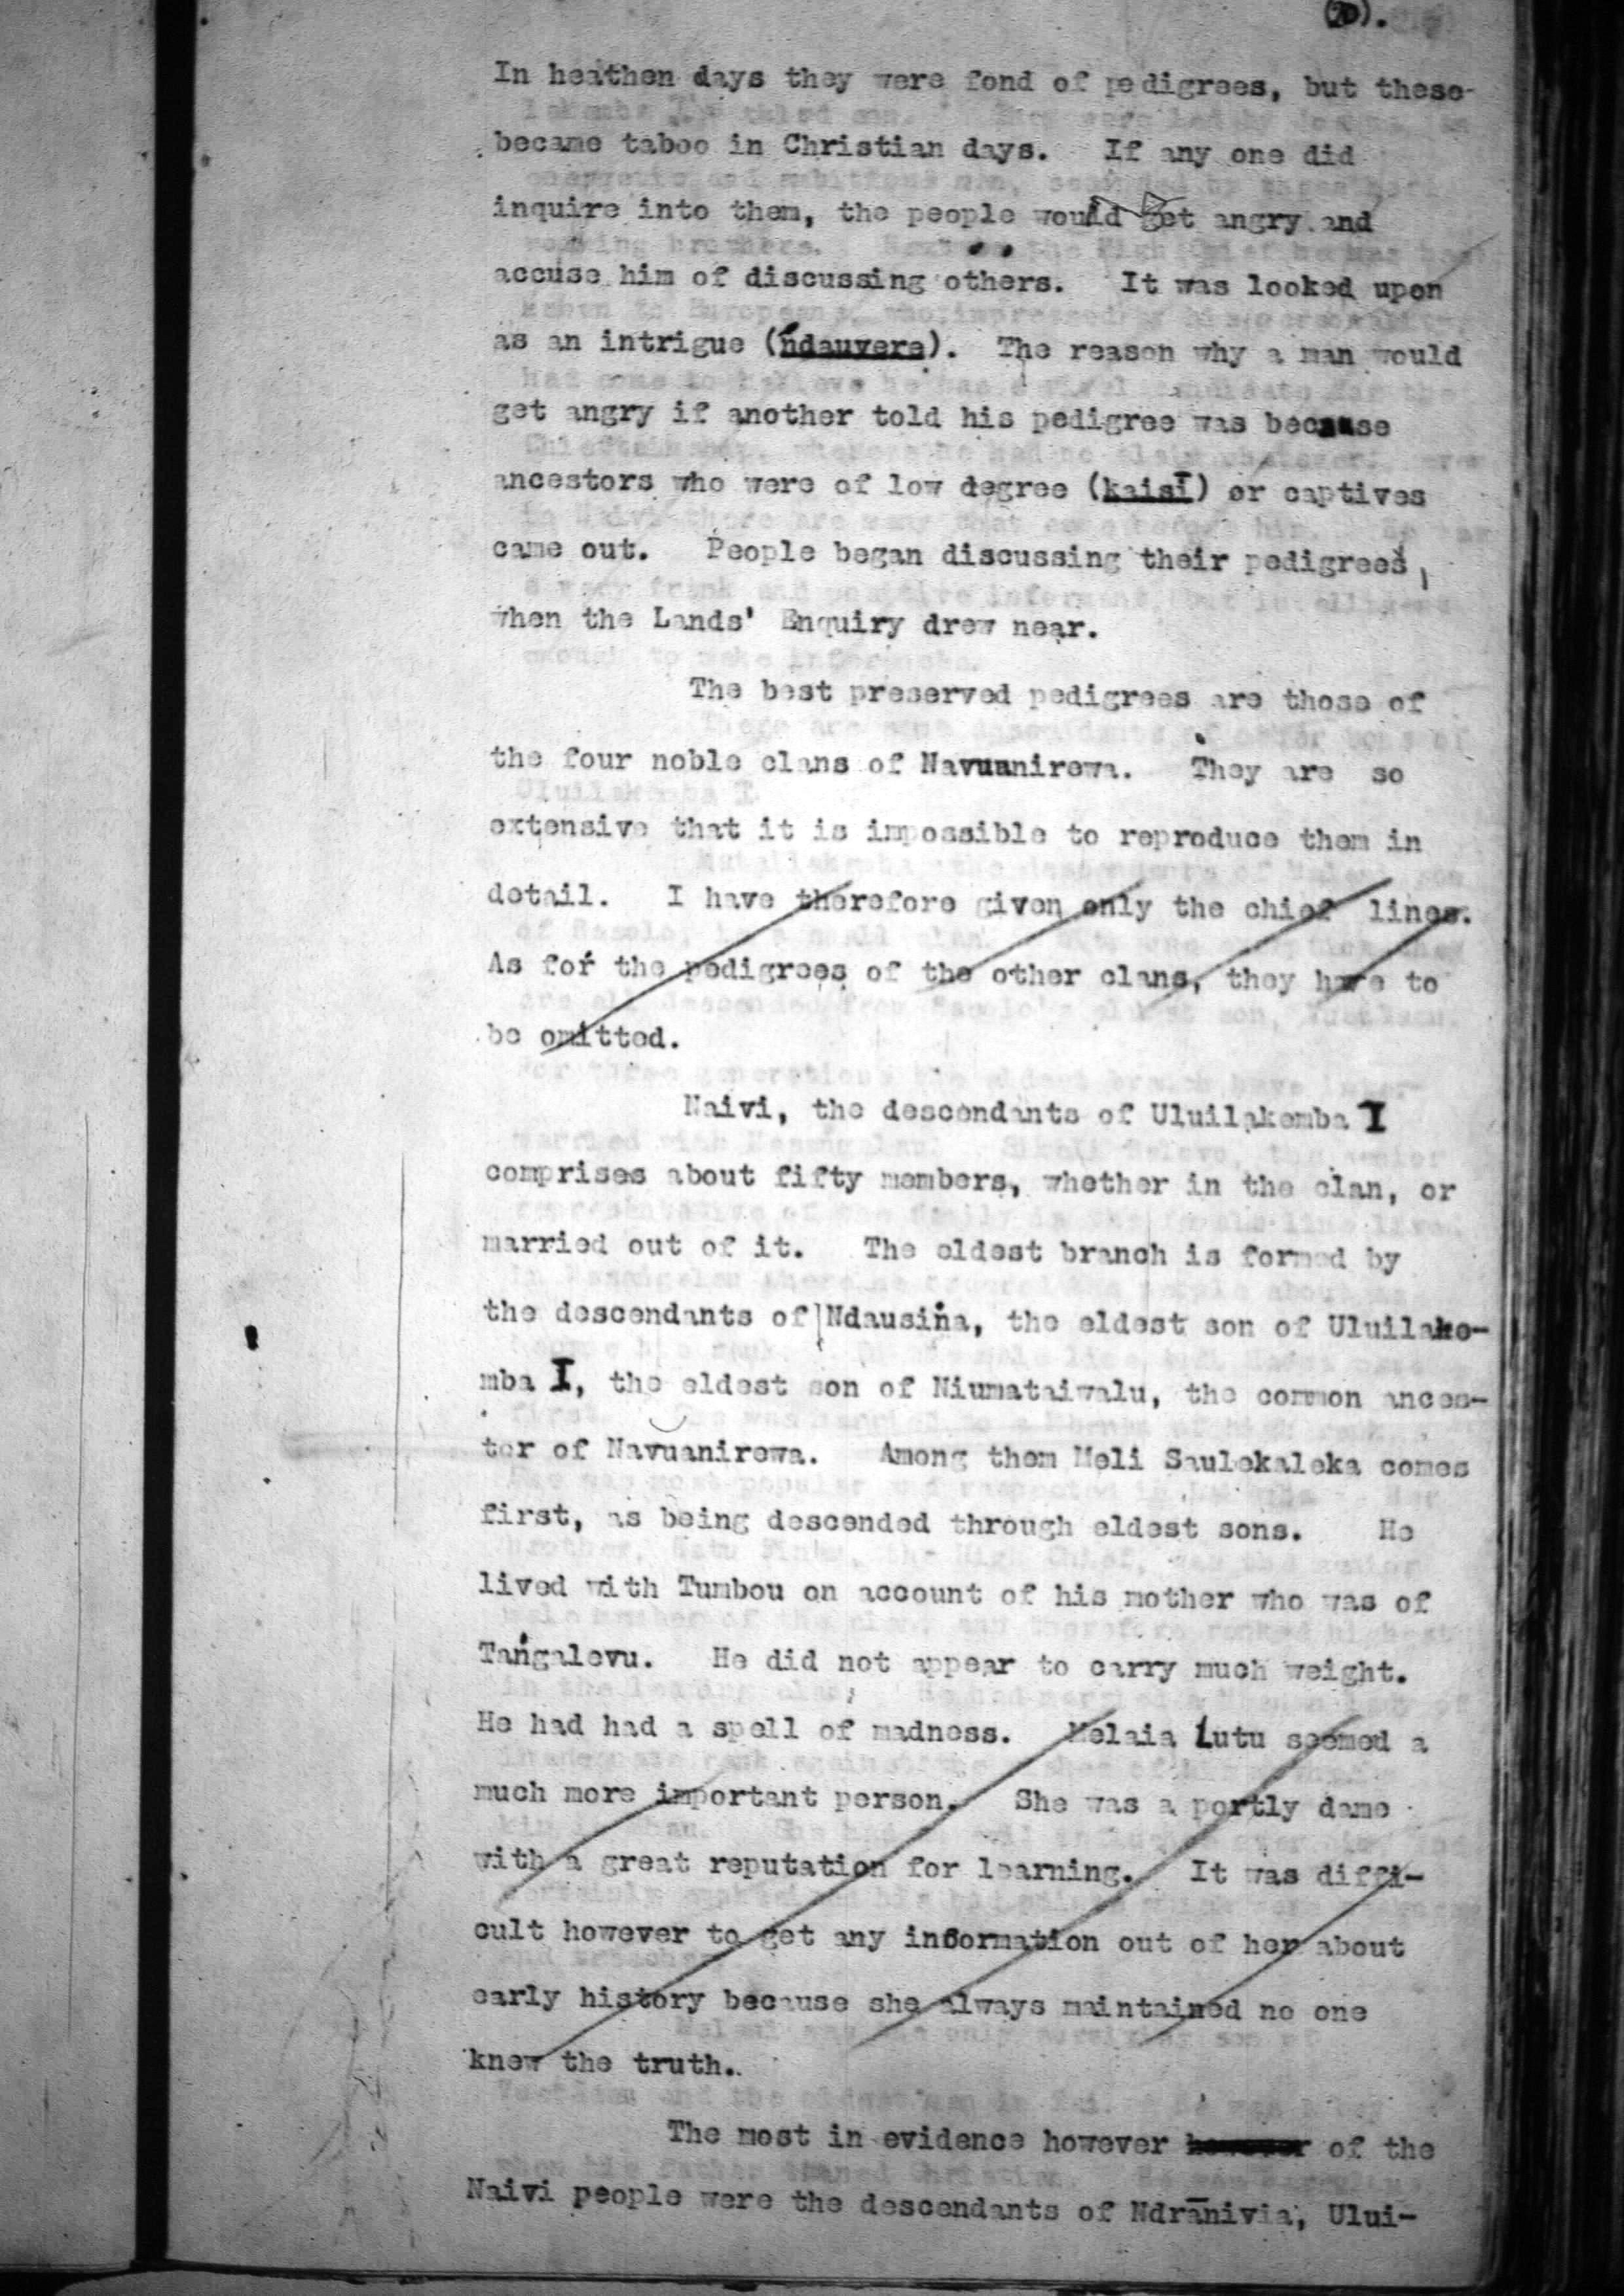 (20).
In heathen days they were fond of pedigrees, but these
became taboo in Christian days. If any one did
inquire into them, the people would get angry and
accuse him of discussing others. It was looked upon
as an intrigue (ndauvere). The reason why a man would
get angry if another told his pedigree was because
ancestors who were of low degree (kaisī) or captives
came out. People began discussing their pedigrees,
when the Lands' Enquiry drew near.
The best preserved pedigrees are those of
the four noble clans of Navuanirewa. They are so
extensive that it is impossible to reproduce them in
detail. I have therefore given only the chief lines.
As for the pedigrees of the other clans, they have to
be omitted.
Naivi, the descendants of Uluilakemba I
comprises about fifty members, whether in the clan, or
married out of it. The eldest branch is formed by
the descendants of Ndausiṅa, the eldest son of Uluilake-
mba I, the eldest son of Niumataiwalu, the common ances-
tor of Navuanirewa. Among them Meli Saulekaleka comes
first, as being descended through eldest sons. He
lived with Tumbou on account of his mother who was of
Taṅgalevu. He did not appear to carry much weight.
He had had a spell of madness. Melaia Lutu seemed a
much more important person. She was a portly dame
with a great reputation for learning. It was diffi-
cult however to get any information out of her about
early history because she always maintained no one
knew the truth.
The most in evidence however however of the
Naivi people were the descendants of Ndrānivia, Ului-